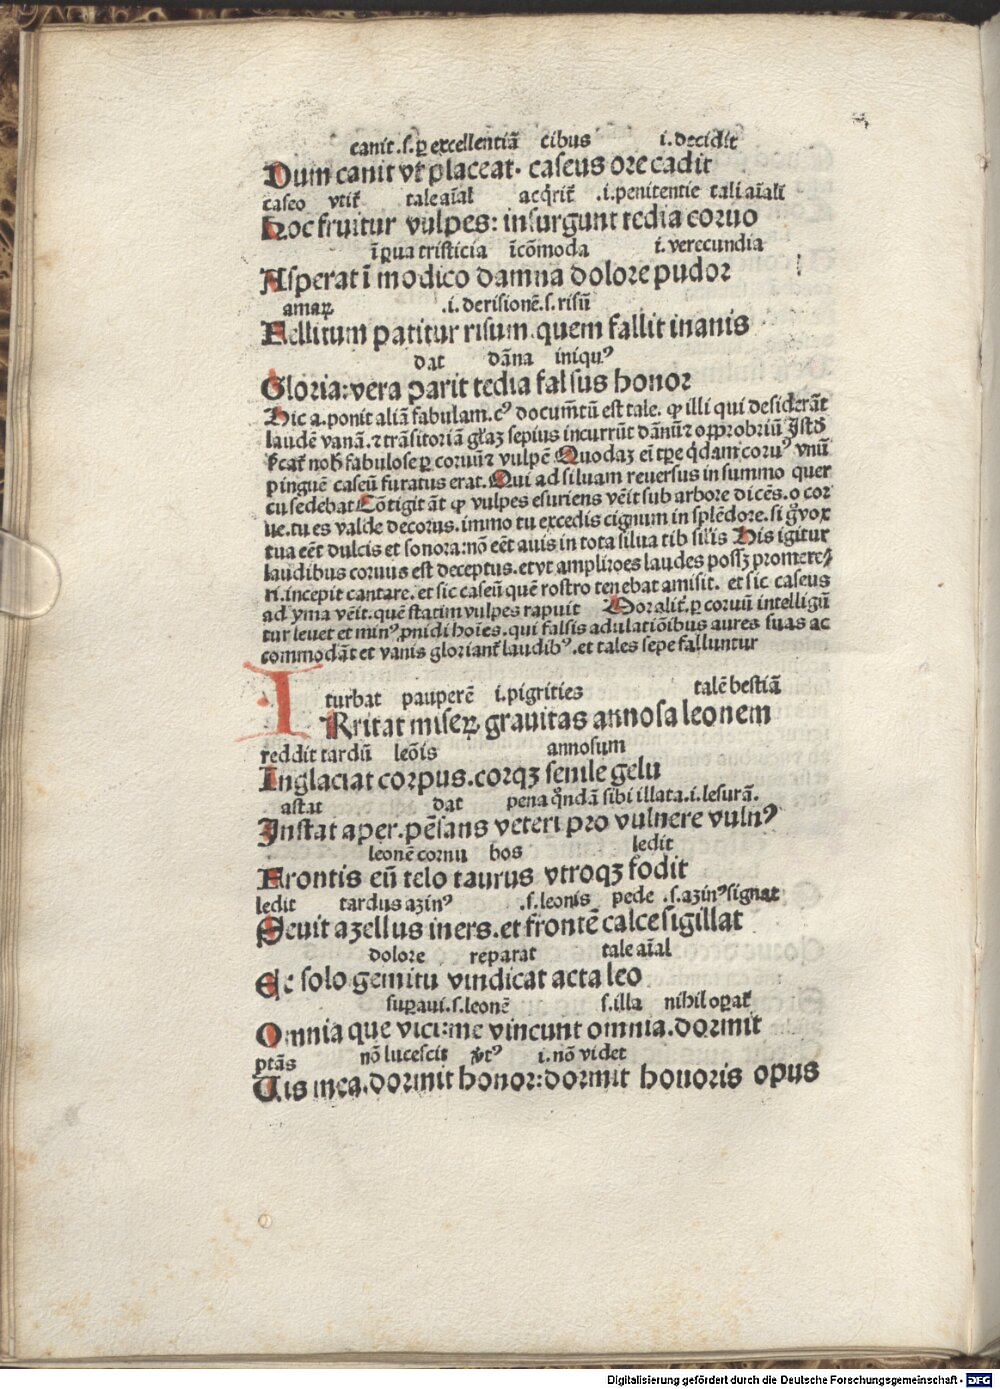 canit.s.ꝑ excellentiā cibus i.decidit
Dum canit vt placeat. caseus ore cadit
caseo vtit᷑ tale aīal acq̇rit᷑ .i.penitentie tali aīali
Hoc fruitur vulpes: insurgunt tedia coruo
īꝑua tristicia īcōmoda i.verecundia
Asperat ī modico damna dolore pudor
amaꝝ .i.derisionē.s.risū
Fellitum patitur risum quem fallit inanis
dat dāna iniqu⁹
Gloria:vera parit tedia falsus honor
Hic a.ponit aliā fabulam.c⁹ documētū est tale. ꝙ illi qui desiderāt
laudē vanā.⁊ trāsitoriā sepius incurrūt dānū ⁊ opprobriū
fabulose ꝑ coruū ⁊ vulpē Quodaꝫ eī tꝑe q̇dam coru⁹ vnū
pinguē caseū furatus erat. Qui ad siluam reuersus in summo quer
cu sedebat Cōtigit āt ꝙ vulpes esuriens vēit sub arbore dicēs.o cor
ue.tu es valde decorus.immo tu excedis cignum in splēdore.si g̊ vox
tua eēt dulcis et sonora:nō eēt auis in tota silua tib silis His igitur
laudibus coruus est deceptus.et vt ampliꝛoes laudes possꝫ promere⸗
ri.incepit cantare.et sic caseū quē rostro tenebat amisit. et sic caseus
ad yma vēit.quē statim vulpes rapuit Moralit᷑.ꝑ coruū intelligū
tur leuet et min⁹ ꝓuidi hoīes.qui falsis adulatiōibus aures suas ac
commodāt et vanis gloriant᷑ laudib⁹.et tales sepe falluntur
turbat pauperē i.pigrities talē bestiā
IRritat miseꝝ grauitas annosa leonem
reddit tardū leōis annosum
Inglaciat corpus.corqꝫ senile gelu
astat dat pena q̊ndā sibi illata.i.lesurā.
Instat aper.pēsans veteri pro vulnere vuln⁹
leonē cornu bos ledit
Frontis eū telo taurus vtroqꝫ fodit
ledit tardus azin⁹ .s.leonis pede .s.azin⁹ signat
Seuit azellus iners.et frontē calce sigillat
dolore reparat tale aīal
Ec solo gemitu vindicat acta leo
suꝑaui.s.leonē s.illa nihil oꝑat᷑
Omnia que vici:me vincunt omnia.dormit
ptās nō lucescit i.nō videt
Uis mea.dormit honor:dormit honoris opus
Digitalisierung gefördert durch die Deutsche Forschungsgemeinschaft - DFG